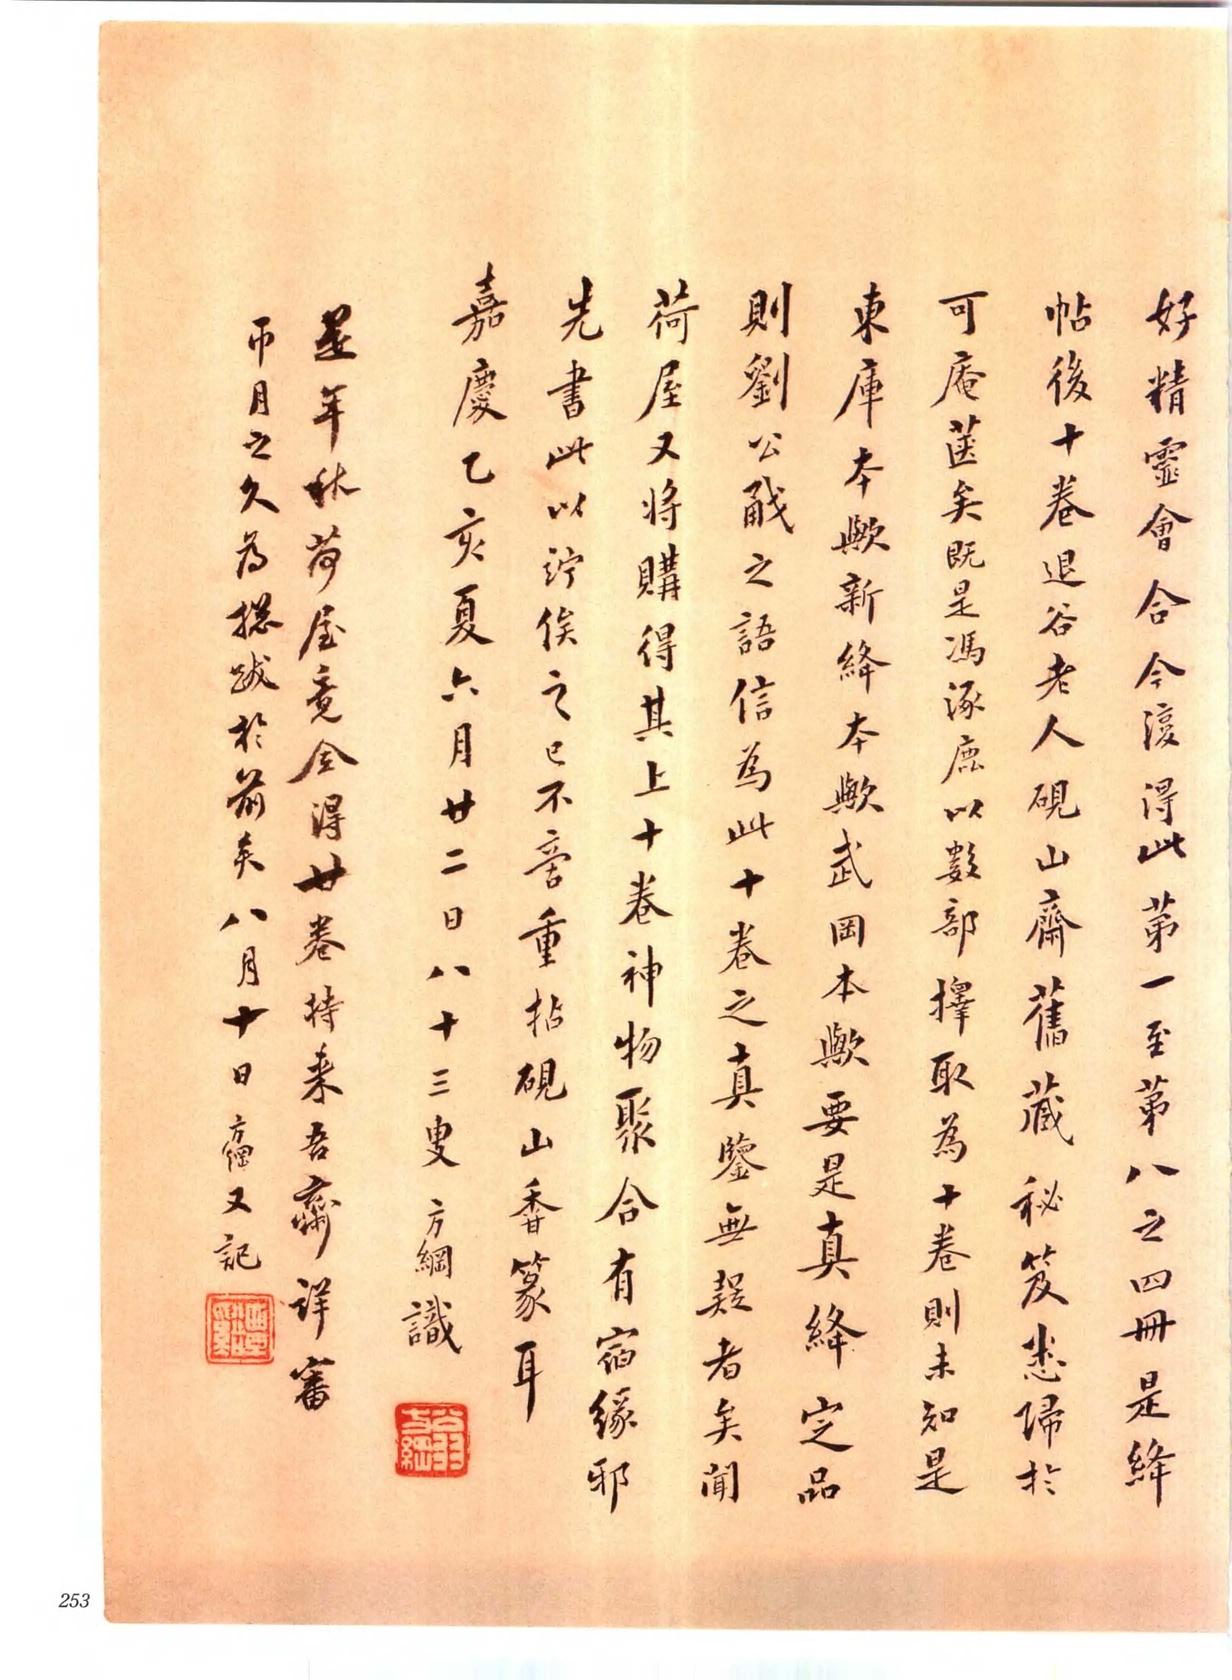 好精靈會合今復得此第一至第八之四冊是絳
帖後十卷退谷老人硯山齋舊藏秘笈悉歸於
可庵篋矣既是馮涿鹿以數部擇取為十卷則未知是
東庫本歟新絳本歟武岡本歟要是真絳定品
則劉公戩之語信為此十卷之真鑒無疑者矣聞
荷屋又將購得其上十卷神物聚合有宿緣邪
先書此以竚俟之已不啻重拈硯山香篆耳
嘉慶乙亥夏六月廿二日八十三叟方綱識
是年秋荷屋竟全得廿卷持来吾齋詳審
帀月之久為摠跋於前矣八月十日方綱又記
翁方綱
253